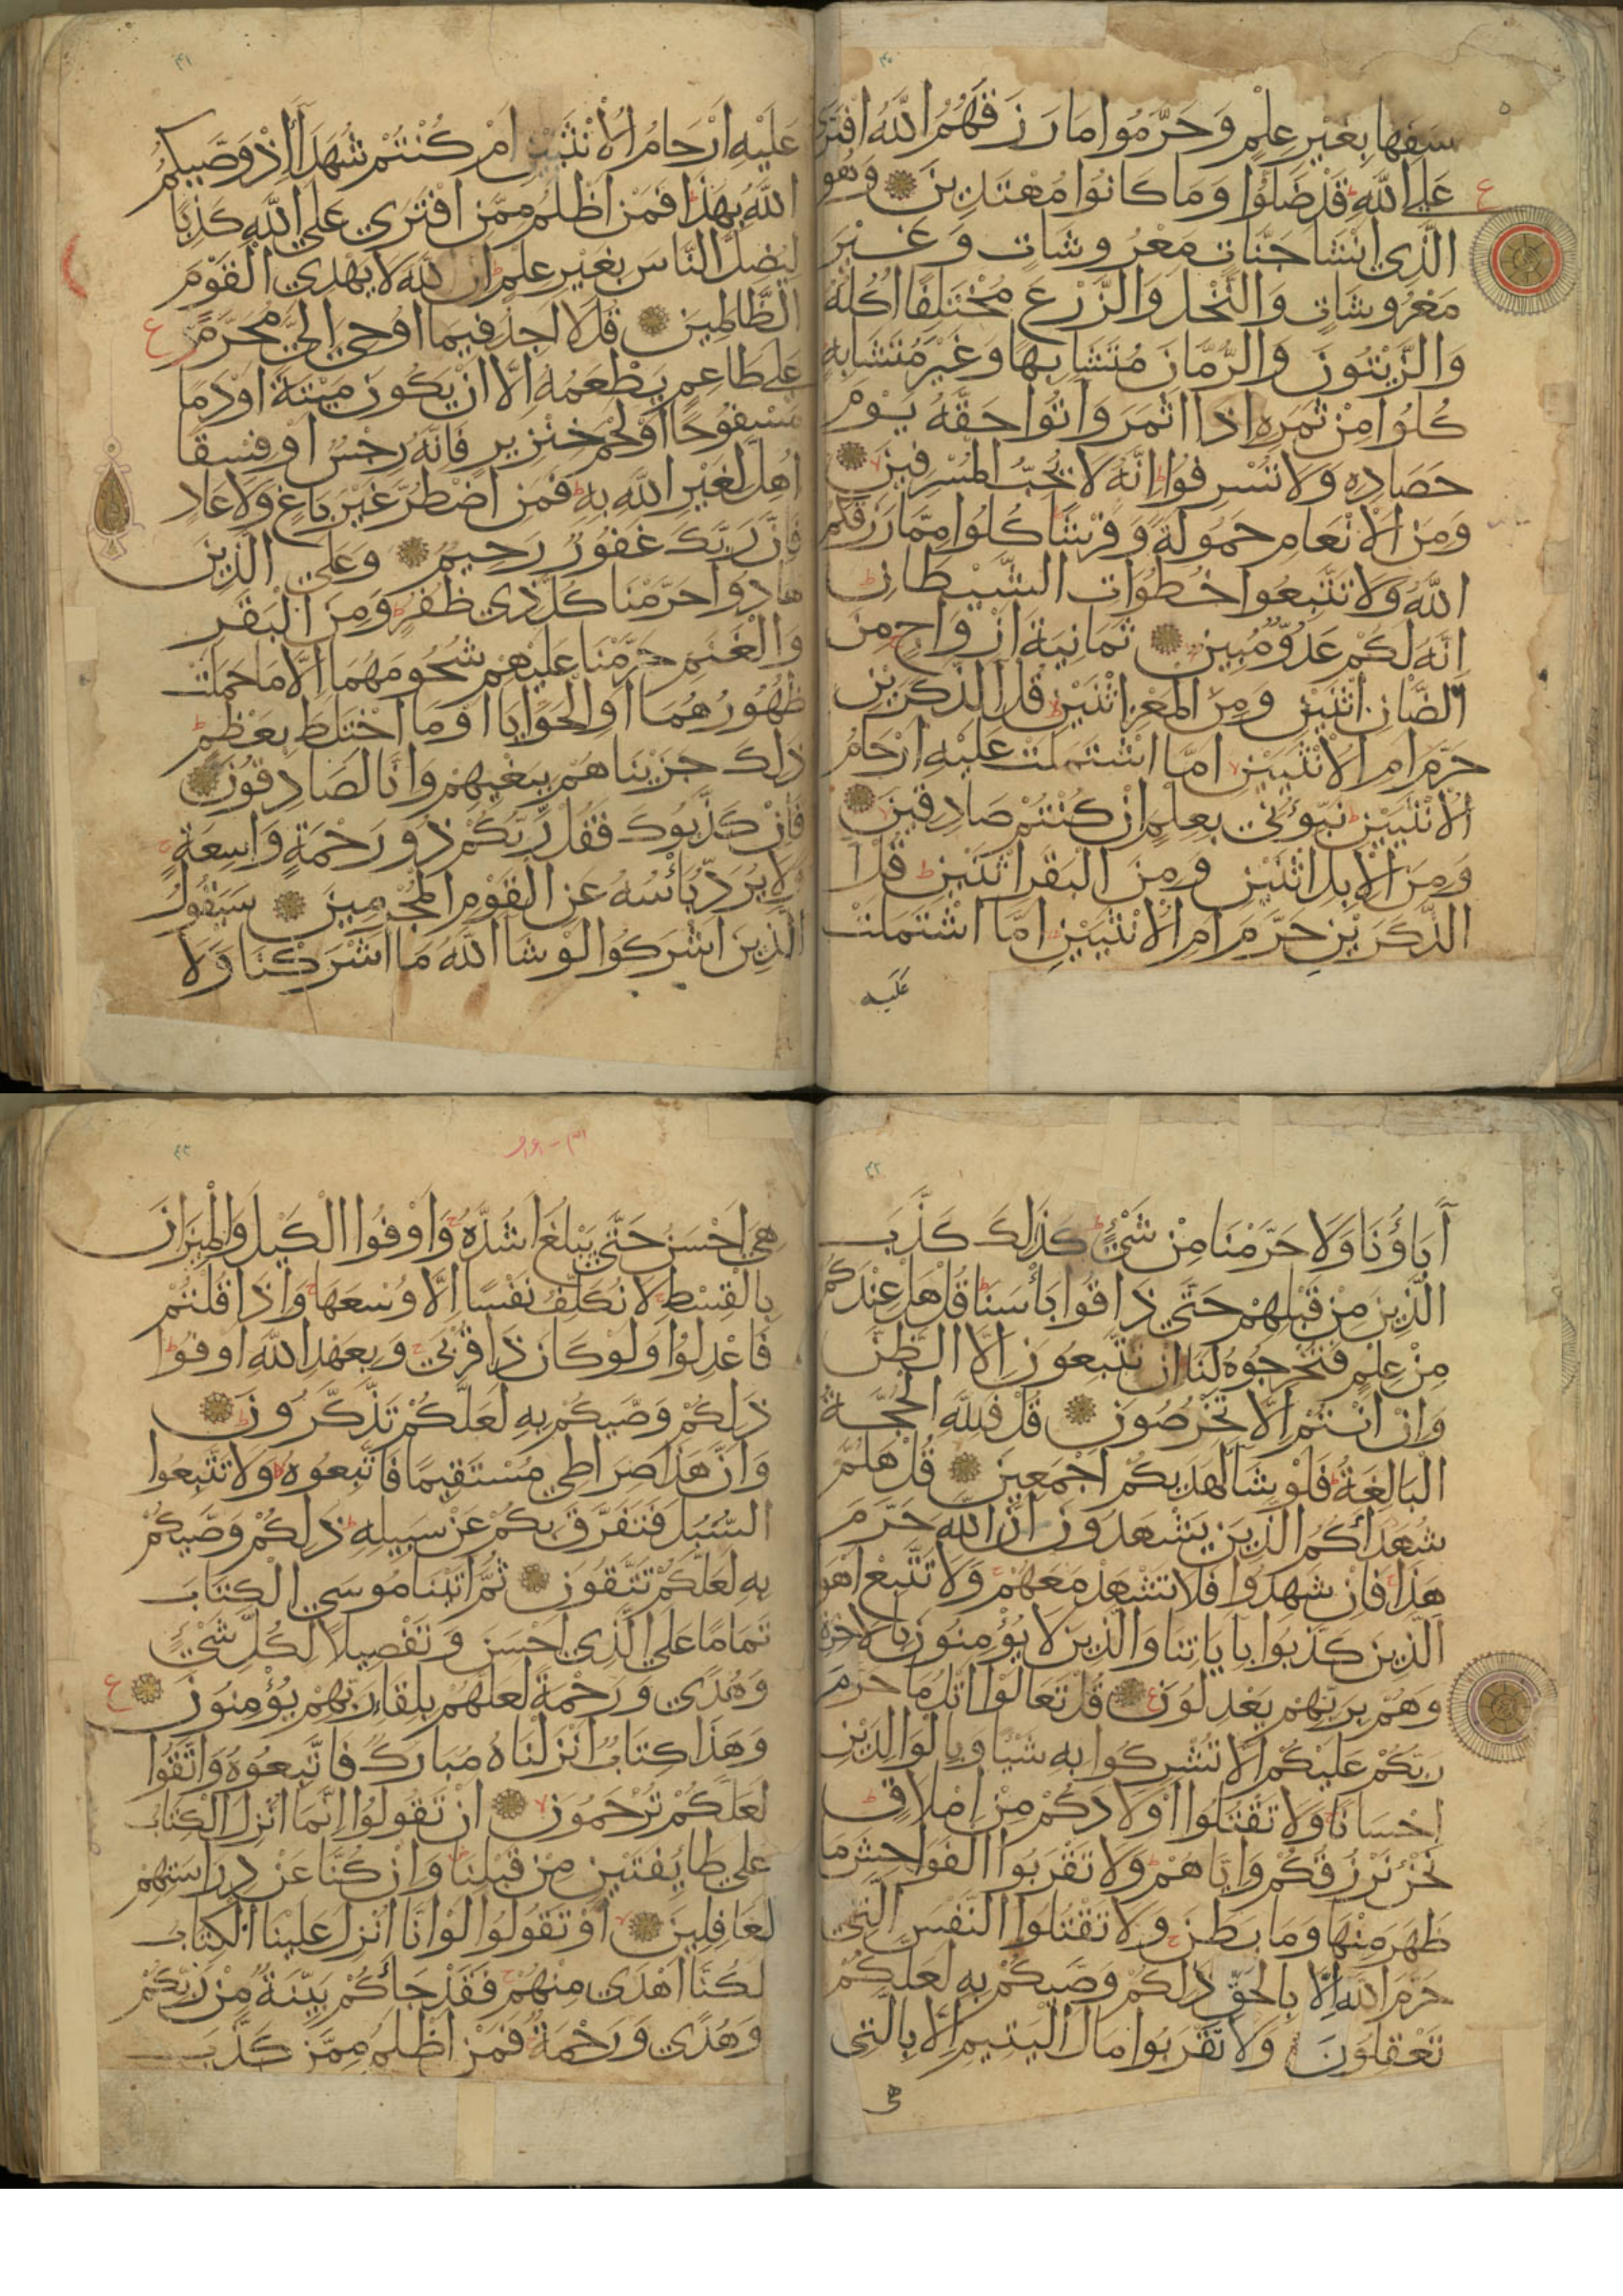 ٤٠
سفها بغير علم وَحَرَّمُوا مَا رَزَقَهُمُ اللَّهُ افْتَرَى
عَلَى اللَّهِ قَدْ ضَلُّوا وَمَا كَانُوا مُهْتَدِينَ وَهُوَ
الَّذِي انْشَا جَنَّاتٍ مَعْرُوشَاتٍ وَغَيْرَ
مَعْرُوشَاتٍ وَالنَّخْلَ وَالزَّرْعَ مُخْتَلِفًا اُكُلُهُ
وَالزَّيْتُونَ وَالرُّمَّانَ مُتَشَابِهًا وَغَيْرَ مُتَشَابِهٍ
كُلُوا مِنْ ثَمَرِهِ اِذَا اثْمَرَ وَاتُوا حَقَّهُ يَوْمَ
حَصَادِهِ وَلَا تُسْرِفُوا اِنَّهُ لَا يُحِبُّ الْمُسْرِفِينَ
وَمِنَ الْاَنْعَامِ حَمُولَةً وَفَرْشًا كُلُوا مِمَّا رَزَقَكُمُ
اللَّهُ وَلَا تَتَّبِعُوا خُطُوَاتِ الشَّيْطَانِ
اِنَّهُ لَكُمْ عَدُوٌّ مُبِينٌ ثَمَانِيَةَ اَزْوَاجٍ مِنَ
الضَّاْنِ اثْنَيْنِ وَمِنَ الْمَعْزِ اثْنَيْنِ قُلْ الذَّكَرَيْنِ
حَرَّمَ اَمِ الْاُنْثَيَيْنِ اَمَّا اشْتَمَلَتْ عَلَيْهِ اَرْحَامُ
الْاُنْثَيَيْنِ نَبِّؤُنِي بِعِلْمٍ اِنْ كُنْتُمْ صَادِقِينَ
وَمِنَ الْاِبِلِ اثْنَيْنِ وَمِنَ الْبَقَرِ اثْنَيْنِ قُلْ آ
الذَّكَرَيْنِ حَرَّمَ اَمِ الْاُنْثَيَيْنِ اَمَّا اشْتَمَلَتْ
عَلَيْه
٤١
عَلَيْهِ اَرْحَامُ الْاُنْثَيَيْنِ اَمْ كُنْتُمْ شُهَدَآَ اِذْ وَصَّيكُمُ
اللَّهُ بِهَذَا فَمَنْ اَظْلَمُ مِمَّنِ افْتَرَي عَلَي اللَّهِ كَذِبًا
لِيُضِلَّ النَّاسَ بِغَيْرِ عِلْمٍ اِنَّ اللَّهَ لَا يَهْدِي الْقَوْمَ
الظَّالِمِينَ قُلْ لَا اَجِدُ فِيمَا اُوْحِيَ اِلَيَّ مُحَرَّمًا
عَلَي طَاعِمٍ يَطْعَمُهُ اِلَّا اَنْ يَكُونَ مَيْتَةً اَوْ دَمًا
مَسْفُوحًا اَوْ لَحْمَ خِنْزِيرٍ فَاِنَّهُ رِجْسٌ اَوْ فِسْقًا
اُهِلَّ لِغَيْرِ اللَّهِ بِهِ فَمَنِ اضْطُرَّ غَيْرَ بَاغٍ وَلَا عَادٍ
فَاِنَّ رَبَّكَ غَفُورٌ رَحِيمٌ وَعَلَي الَّذِينَ
هَادُوا حَرَّمْنَا كُلَّ ذِي ظُفُرٍ وَمِنَ الْبَقَرِ
وَالْغَنَمِ حَرَّمْنَا عَلَيْهِمْ شُحُومَهُمَا اِلَّا مَا حَمَلَتْ
ظُهُورُهُمَا اَوِ الْحَوَايَا اَوْ مَا اخْتَلَطَ بِعَظْمٍ
ذَلِكَ جَزَيْنَاهُمْ بِبَغْيِهِمْ وَاِنَّا لَصَادِقُونَ
فَاِنْ كَذَّبُوكَ فَقُلْ رَبُّكُمْ ذُو رَحْمَةٍ وَاسِعَةٍ
وَلَا يُرَدُّ بَاْسُهُ عَنِ الْقَوْمِ الْمُجْرِمِينَ سَيَقُولُ
الَّذِينَ اَشْرَكُوا لَوْ شَا اللَّهُ مَا اَشْرَكْنَا وَلَا
٤٢
آبَاؤُنَا وَلَا حَرَّمْنَا مِنْ شَيْءٍ كَذَلِكَ كَذَّبَ
الَّذِينَ مِنْ قَبْلِهِمْ حَتَّي ذَاقُوا بَاْسَنَا قُلْ هَلْ عِنْدَكُمْ
مِنْ عِلْمٍ فَتُخْرِجُوهُ لَنَا اِنْ تَتَّبِعُونَ اِلَّا الظَّنَّ
وَاِنْ اَنْتُمْ اِلَّا تَخْرُصُونَ قُلْ فَلِلَّهِ الْحُجَّةُ
الْبَالِغَةُ فَلَوْ شَا لَهَدَيكُمْ اَجْمَعِينَ قُلْ هَلُمَّ
شُهَدَاَكُمُ الَّذِينَ يَشْهَدُونَ اَنَّ اللَّهَ حَرَّمَ
هَذَا فَاِنْ شَهِدُوا فَلَا تَشْهَدْ مَعَهُمْ وَلَا تَتَّبِعْ اَهْوَا
الَّذِينَ كَذَّبُوا بِاَيَاتِنَا وَالَّذِينَ لَا يُؤْمِنُونَ بِالْاَخِرَةِ
وَهُمْ بِرَبِّهِمْ يَعْدِلُونَ قُلْ تَعَالَوْا اَتْلُ مَا حَرَّمَ
رَبُّكُمْ عَلَيْكُمْ اَلَّا تُشْرِكُوا بِهِ شَيْئًا وَبِالْوَالِدَيْنِ
اِحْسَانًا وَلَا تَقْتُلُوا اَوْلَادَكُمْ مِنْ اِمْلَاقٍ
نَحْنُ نَرْزُقُكُمْ وَاِيَّاهُمْ وَلَا تَقْرَبُوا الْفَوَاحِشَ مَا
ظَهَرَ مِنْهَا وَمَا بَطَنَ وَلَا تَقْتُلُوا النَّفْسَ الَّتِي
حَرَّمَ اللَّهُ اِلَّا بِالْحَقِّ ذَلِكُمْ وَصَّيكُمْ بِهِ لَعَلَّكُمْ
تَعْقِلُونَ وَلَا تَقْرَبُوا مَالَ الْيَتِيمِ اِلَّا بِالَّتِي
هي
٤٣
هِيَ اَحْسَنُ حَتَّي يَبْلُغَ اَشُدَّهُ وَاَوْفُوا الْكَيْلَ وَالْمِيزَانَ
بِالْقِسْطِ لَا نُكَلِّفُ نَفْسًا اِلَّا وُسْعَهَا وَاِذَا قُلْتُمْ
فَاعْدِلُوا وَلَوْ كَانَ ذَا قُرْبَي وَبِعَهْدِ اللَّهِ اَوْفُوا
ذَلِكُمْ وَصَّيكُمْ بِهِ لَعَلَّكُمْ تَذَّكَّرُونَ
وَاَنَّ هَذَا صِرَاطِي مُسْتَقِيمًا فَاتَّبِعُوهُ وَلَا تَتَّبِعُوا
السُّبُلَ فَتَفَرَّقَ بِكُمْ عَنْ سَبِيلِهِ ذَلِكُمْ وَصَّيكُمْ
بِهِ لَعَلَّكُمْ تَتَّقُونَ ثُمَّ اتَيْنَا مُوسَي الْكِتَابَ
تَمَامًا عَلَي الَّذِي اَحْسَنَ وَتَفْصِيلًا لِكُلِّ شَيْءٍ
وَهُدًي وَرَحْمَةً لَعَلَّهُمْ بِلِقَاءِ رَبِّهِمْ يُؤْمِنُونَ
وَهَذَا كِتَابٌ اَنْزَلْنَاهُ مُبَارَكٌ فَاتَّبِعُوهُ وَاتَّقُوا
لَعَلَّكُمْ تُرْحَمُونَ اَنْ تَقُولُوا اِنَّمَا اُنْزِلَ الْكِتَابُ
عَلَي طَايِفَتَيْنِ مِنْ قَبْلِنَا وَاِنْ كُنَّا عَنْ دِرَاسَتِهِمْ
لَغَافِلِينَ اَوْ تَقُولُوا لَوْ اَنَّا اُنْزِلَ عَلَيْنَا الْكِتَابُ
لَكُنَّا اَهْدَي مِنْهُمْ فَقَدْ جَاَكُمْ بَيِّنَةٌ مِنْ رَبِّكُمْ
وَهُدًي وَرَحْمَةٌ فَمَنْ اَظْلَمُ مِمَّنْ كَذَّبَ